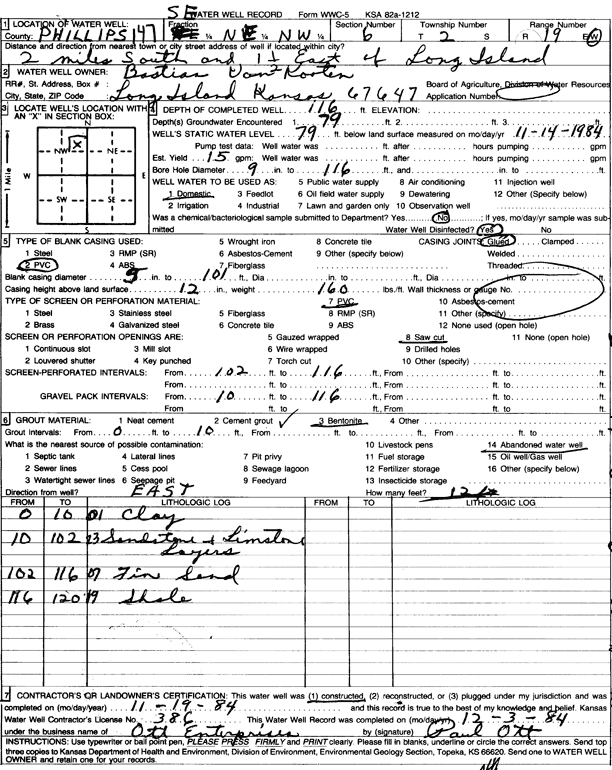 SE WATER WELL RECORD Form WWC-5 KSA 82a-1212
1 LOCATION OF WATER WELL: Fraction Section Number Township Number Range Number
County: PHILLIPS 147 ¼ NE ¼ NW ¼ 6 T 2 S R 19 E/W
Distance and direction from nearest town or city street address of well if located within city?
2 miles South and 1½ East of Long Island
2 WATER WELL OWNER: Bastian Van Korten
RR#, St. Address, Box # : Board of Agriculture, Division of Water Resources
City, State, ZIP Code : Long Island Kansas 67647 Application Number:
3 LOCATE WELL'S LOCATION WITH AN "X" IN SECTION BOX:
N
NW X NE
W E
SW SE
S
1 Mile
4 DEPTH OF COMPLETED WELL 116 ft. ELEVATION:
Depth(s) Groundwater Encountered 1. 79 ft. 2. ft. 3. ft.
WELL'S STATIC WATER LEVEL 79 ft. below land surface measured on mo/day/yr 11-14-1984
Pump test data: Well water was ft. after hours pumping gpm
Est. Yield 15 gpm: Well water was ft. after hours pumping gpm
Bore Hole Diameter 9 in. to 116 ft., and in. to ft.
WELL WATER TO BE USED AS: 5 Public water supply 8 Air conditioning 11 Injection well
1 Domestic 3 Feedlot 6 Oil field water supply 9 Dewatering 12 Other (Specify below)
2 Irrigation 4 Industrial 7 Lawn and garden only 10 Observation well
Was a chemical/bacteriological sample submitted to Department? Yes No ; If yes, mo/day/yr sample was submitted Water Well Disinfected? Yes No
5 TYPE OF BLANK CASING USED: 5 Wrought iron 8 Concrete tile CASING JOINTS: Glued Clamped
1 Steel 3 RMP (SR) 6 Asbestos-Cement 9 Other (specify below) Welded
2 PVC 4 ABS 7 Fiberglass Threaded
Blank casing diameter 5 in. to 101 ft., Dia in. to ft., Dia in. to ft.
Casing height above land surface 12 in., weight 160 lbs./ft. Wall thickness or gauge No.
TYPE OF SCREEN OR PERFORATION MATERIAL: 7 PVC 10 Asbestos-cement
1 Steel 3 Stainless steel 5 Fiberglass 8 RMP (SR) 11 Other (specify)
2 Brass 4 Galvanized steel 6 Concrete tile 9 ABS 12 None used (open hole)
SCREEN OR PERFORATION OPENINGS ARE: 5 Gauzed wrapped 8 Saw cut 11 None (open hole)
1 Continuous slot 3 Mill slot 6 Wire wrapped 9 Drilled holes
2 Louvered shutter 4 Key punched 7 Torch cut 10 Other (specify)
SCREEN-PERFORATED INTERVALS: From 102 ft. to 116 ft., From ft. to ft.
From ft. to ft., From ft. to ft.
GRAVEL PACK INTERVALS: From 10 ft. to 116 ft., From ft. to ft.
From ft. to ft., From ft. to ft.
6 GROUT MATERIAL: 1 Neat cement 2 Cement grout 3 Bentonite 4 Other
Grout Intervals: From 0 ft. to 10 ft., From ft. to ft., From ft. to ft.
What is the nearest source of possible contamination: 10 Livestock pens 14 Abandoned water well
1 Septic tank 4 Lateral lines 7 Pit privy 11 Fuel storage 15 Oil well/Gas well
2 Sewer lines 5 Cess pool 8 Sewage lagoon 12 Fertilizer storage 16 Other (specify below)
3 Watertight sewer lines 6 Seepage pit 9 Feedyard 13 Insecticide storage
Direction from well? EAST How many feet?
FROM TO LITHOLOGIC LOG FROM TO LITHOLOGIC LOG
0 10 01 Clay
10 102 23 Sandstone + Limstone
Layers
102 116 07 Fin Sand
116 120 19 Shale
7 CONTRACTOR'S OR LANDOWNER'S CERTIFICATION: This water well was (1) constructed, (2) reconstructed, or (3) plugged under my jurisdiction and was
completed on (mo/day/year) 11-19-84 and this record is true to the best of my knowledge and belief. Kansas
Water Well Contractor's License No. 386 This Water Well Record was completed on (mo/day/yr) 12-3-84
under the business name of Ott Enterprises by (signature) Paul Ott
INSTRUCTIONS: Use typewriter or ball point pen, PLEASE PRESS FIRMLY and PRINT clearly. Please fill in blanks, underline or circle the correct answers. Send top
three copies to Kansas Department of Health and Environment, Division of Environment, Environmental Geology Section, Topeka, KS 66620. Send one to WATER WELL
OWNER and retain one for your records.